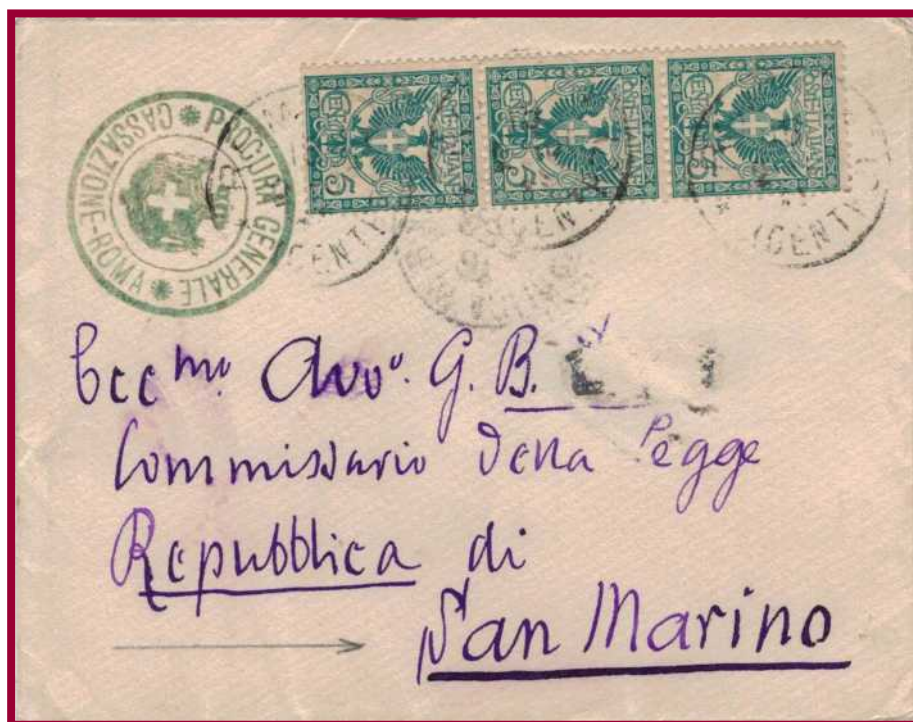 PROCURA GENERALE
CASSAZIONE-ROMA
POSTE ITALIANE
CENT. 5
POSTE ITALIANE
CENT. 5
POSTE ITALIANE
CENT. 5
(CENTRO)
(CENTRO)
Ecc.mo Avvo. G. B.
Commissario della Legge
Repubblica di
San Marino